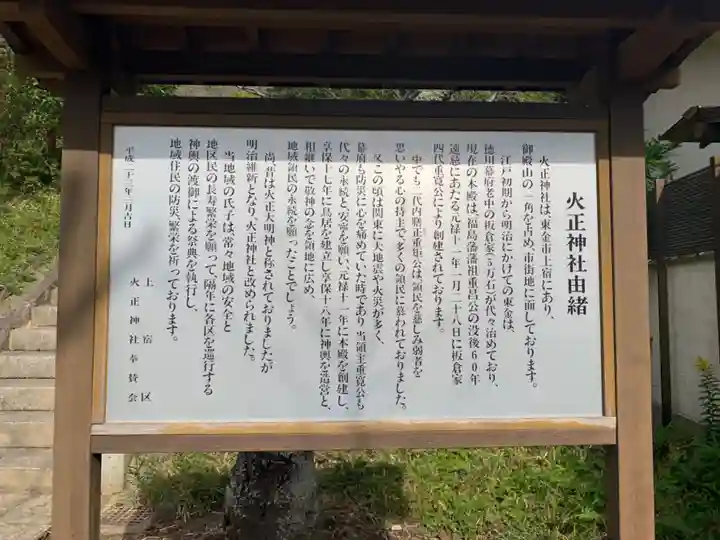 火正神社由緒
火正神社は、東金市上宿にあり、
御殿山の一角を占め、市街地に面しております。
江戸初期から明治にかけての東金は、
徳川幕府老中の板倉家(五万石)が代々治めており、
現在の本殿は、福島藩藩祖重昌公の没後60年
遠忌にあたる元禄十一年一月二十八日に板倉家
四代重寛公により創建されております。
中でも二代内膳正重矩公は、領民を慈しみ弱者を
思いやる心の持主で多くの領民に慕われておりました。
又この頃は関東に大地震や火災が多く、
幕府も防災に心を痛めていた時であり、当領主重寛公も
代々の永続と、安寧を願い、元禄十一年に本殿を創建し、
享保十七年に鳥居を建立し享保十八年に神輿を造営と、
相継いで敬神の念を領地に広め、
地域領民の永続を願ったことでしょう。
尚、昔は火正大明神と称されておりましたが
明治維新となり、火正神社と改められました。
当地域の氏子は、常々地域の安全と
地区民の長寿繁栄を願って、隔年に各区を巡行する
神輿の渡御による祭典を執行し、
地域住民の防災、繁栄を祈っております。
平成二十三年三月吉日
上宿区
火正神社奉賛会